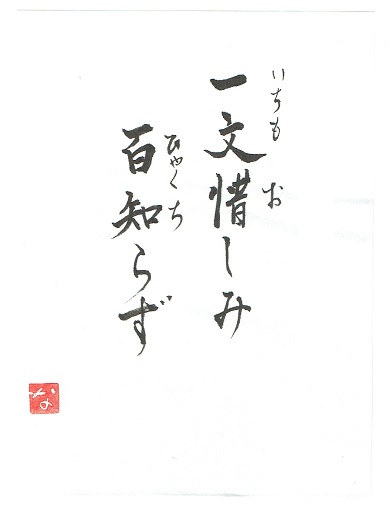 いちも お
一文惜しみ
ひゃくち
百知らず
な